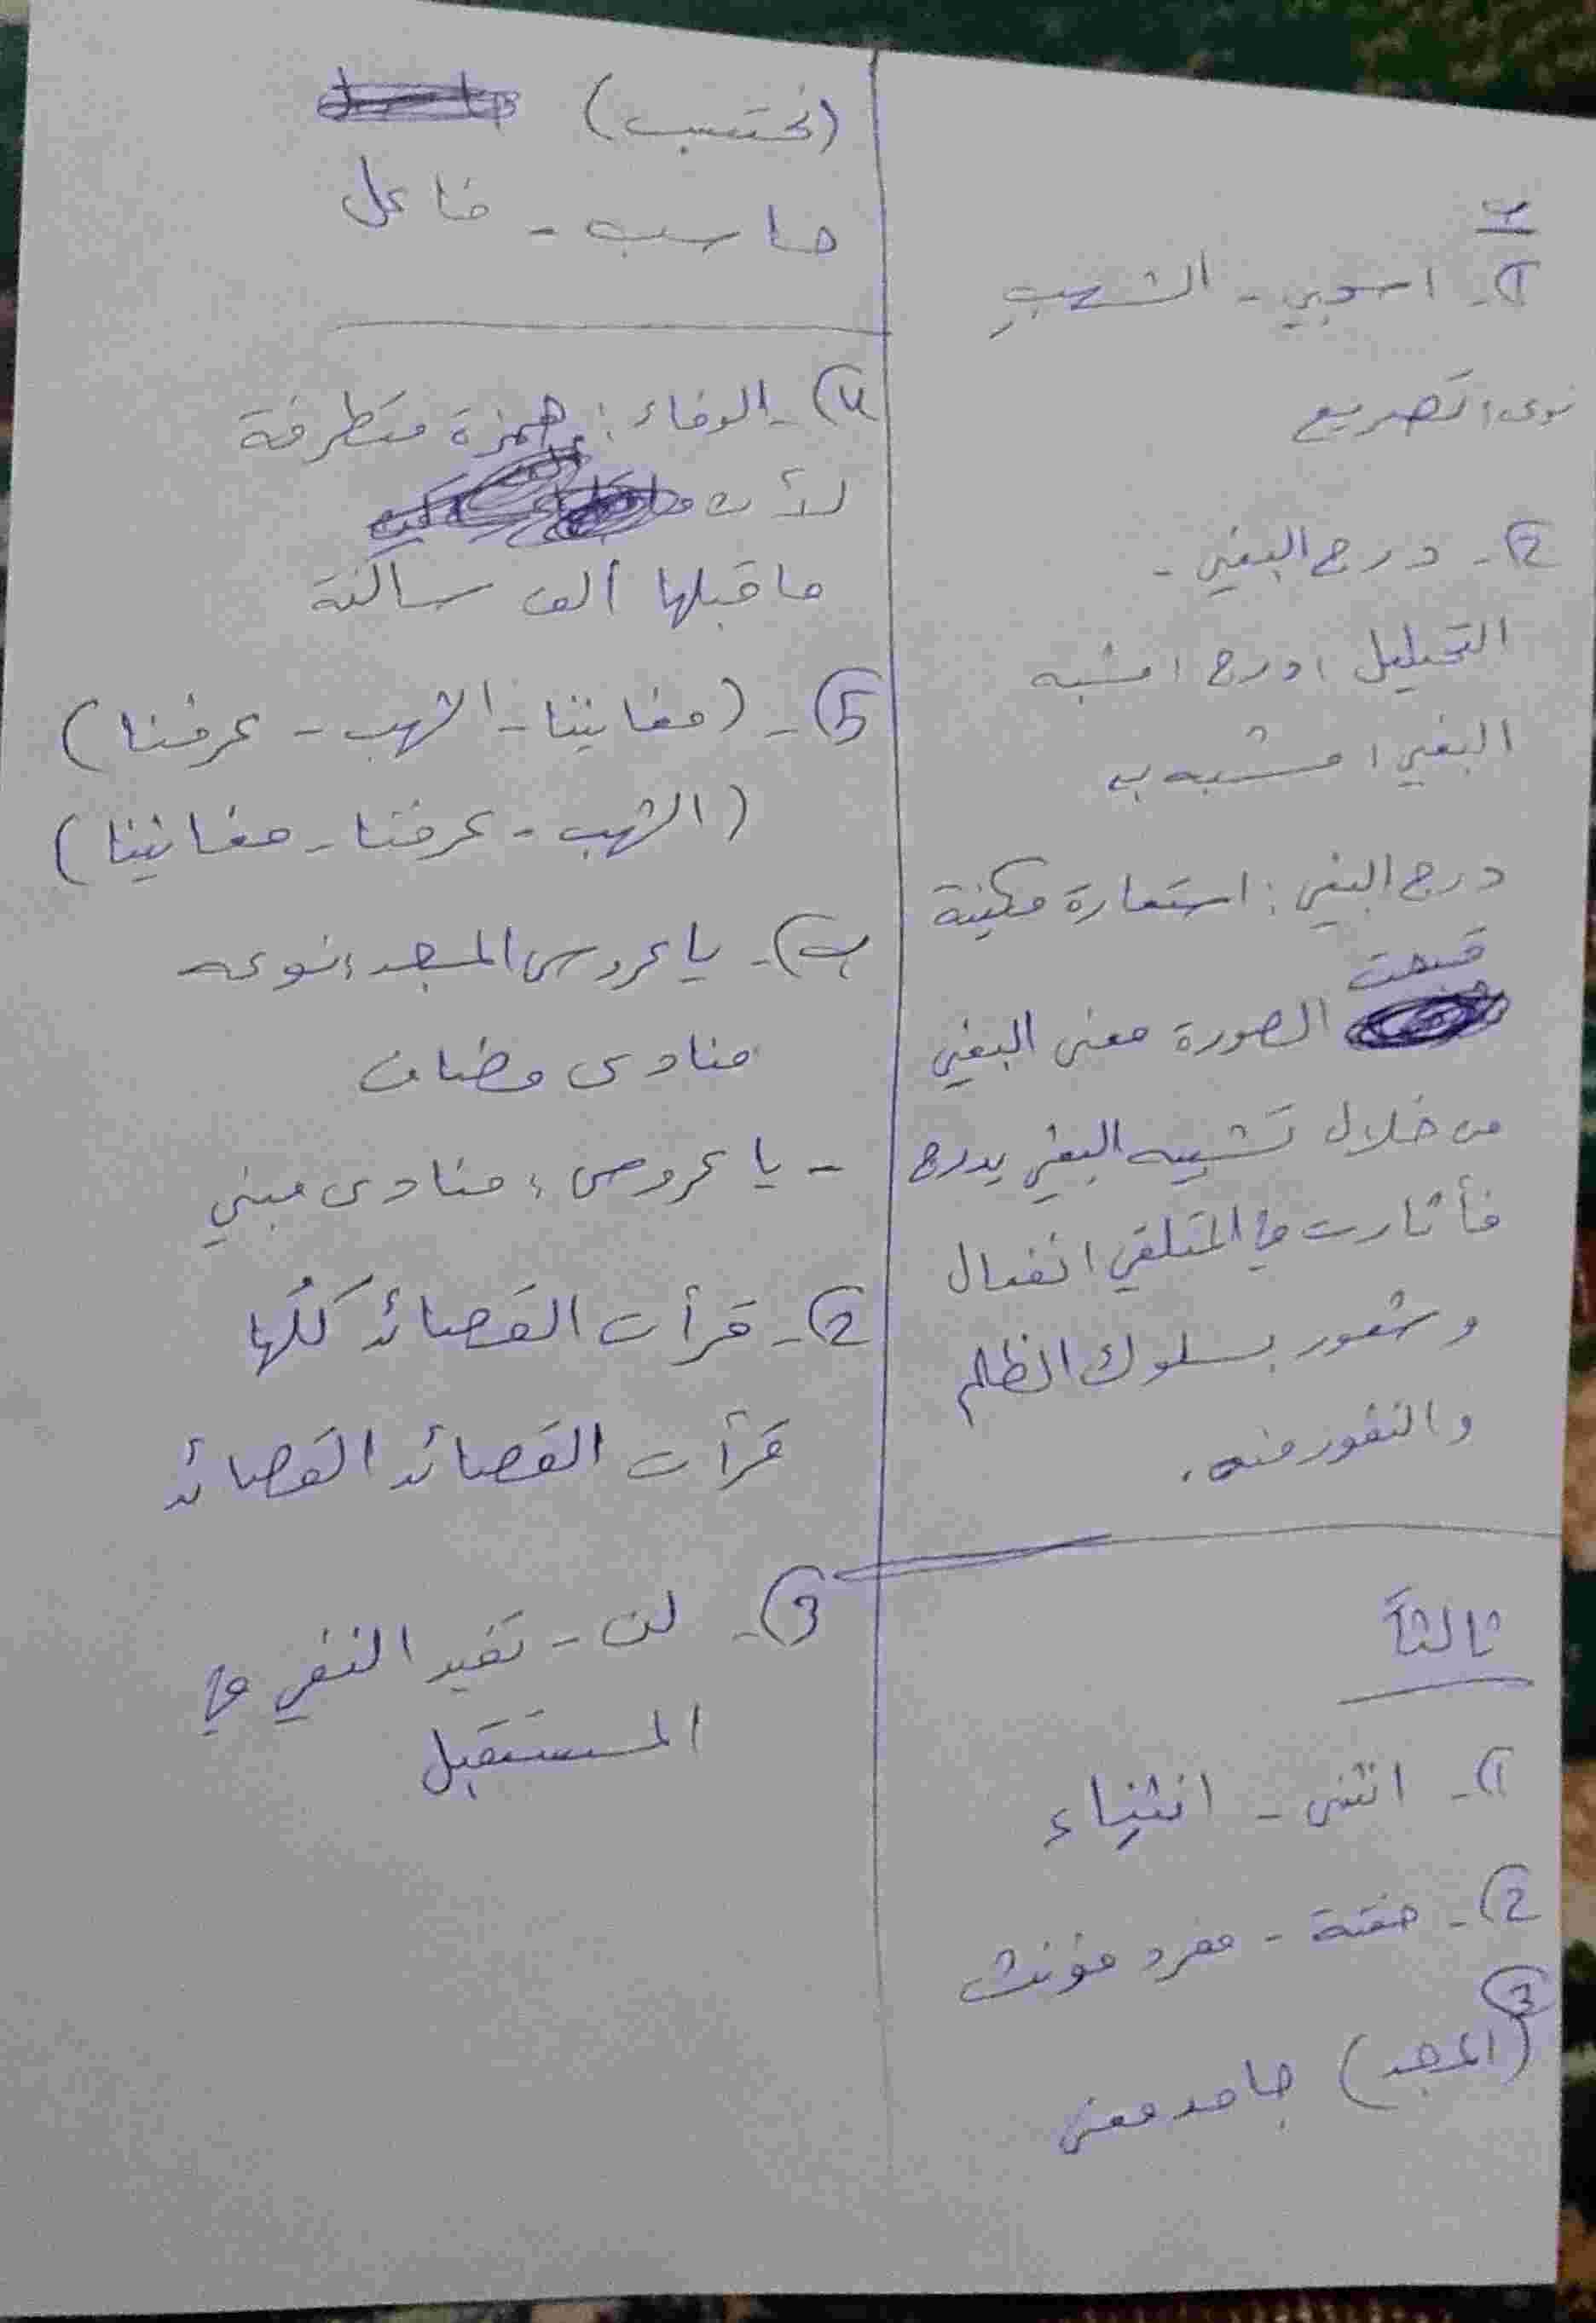 ب
1- اسحبي - الشهبِ
نوعه: تصريع
2- درج البغي -
التحليل: درج: مشبه
البغي: مشبه به
درج البغي: استعارة مكنية
قبحت
الصورة معنى البغي
من خلال تشبيه البغي بدرج
فأثارت في المتلقي انفعال
وشعور بسلوك الظالم
والنفور منه.
ثالثاً
1- انثنى - انثناء
2- صفة - مفرد مؤنث
3
(المجد) جامد معنى
(نحتسب)
حاسب - فاعل
4- الوفاء: همزة متطرفة
لأن
ما قبلها ألف ساكنة
5- (مغانينا - الشهب - عرفنا)
(الشهب - عرفنا - مغانينا)
ب- يا عروس المجد: نوعه
منادى مضاف
- يا عروس: منادى مبني
2- قرأت القصائد كلُّها
قرأت القصائد القصائد
3- لن - تفيد النفي في
المستقبل